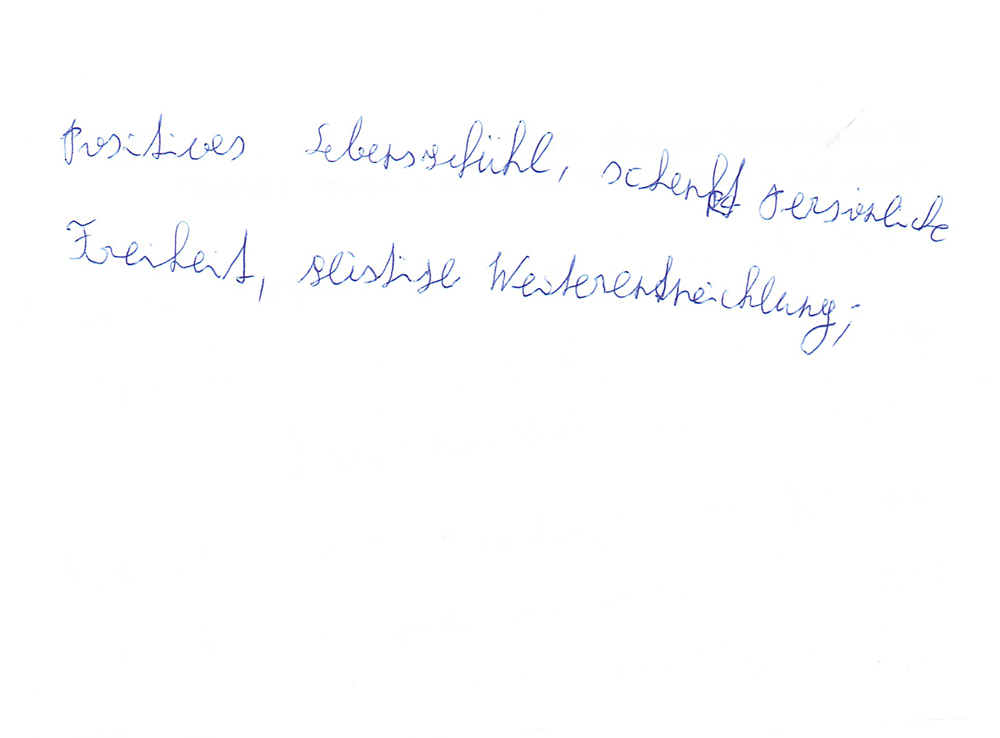 Positives Lebensgefühl, schenkt persönliche
Freiheit, geistige Weiterentwicklung;